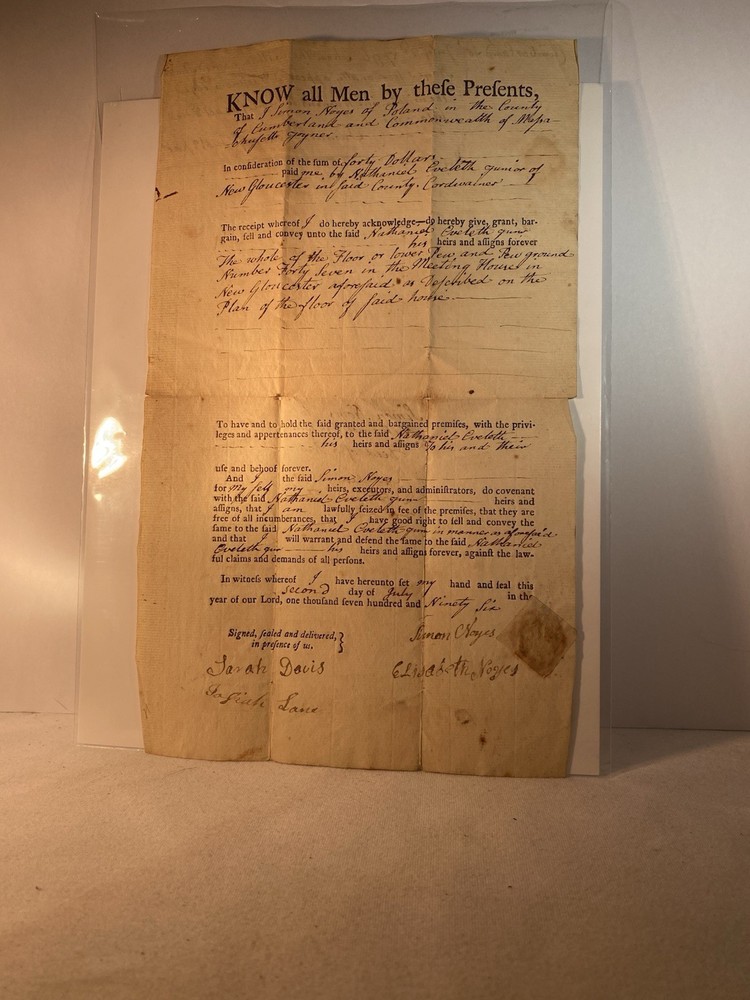 KNOW all Men by theſe Preſents,
That I Simon Noyes of Poland in the County
of Cumberland and Commonwealth of Maſsa-
chuſetts Joyner
In conſideration of the ſum of forty Dollars
paid me by Nathaniel Eveleth junior of
New Gloucester in ſaid County. Cordwainer
The receipt whereof I do hereby acknowledge—do hereby give, grant, bar-
gain, ſell and convey unto the ſaid Nathaniel Eveleth junr
his heirs and aſſigns forever
The whole of the Floor or lower Pew and Pew ground
Number Forty Seven in the Meeting House in
New Gloucester aforeſaid as Deſcribed on the
Plan of the floor of ſaid house
To have and to hold the ſaid granted and bargained premiſes, with the privi-
leges and appertenances thereof, to the ſaid Nathaniel Eveleth
his heirs and aſſigns To his and their
uſe and behoof forever.
And I the ſaid Simon Noyes
for My ſelf my heirs, executors, and adminiſtrators, do covenant
with the ſaid Nathaniel Eveleth junr heirs and
aſſigns, that I am lawfully ſeized in fee of the premiſes, that they are
free of all incumberances, that I have good right to ſell and convey the
ſame to the ſaid Nathaniel Eveleth junr in manner as aforeſaid
and that I will warrant and defend the ſame to the ſaid Nathaniel
Eveleth junr his heirs and aſſigns forever, againſt the law-
ful claims and demands of all perſons.
In witneſs whereof I have hereunto ſet my hand and ſeal this
second day of July in the
year of our Lord, one thouſand ſeven hundred and Ninety Six
Signed, ſealed and delivered, }
in preſence of us.
Simon Noyes
Sarah Davis
Elisabeth Noyes
Josiah Lane